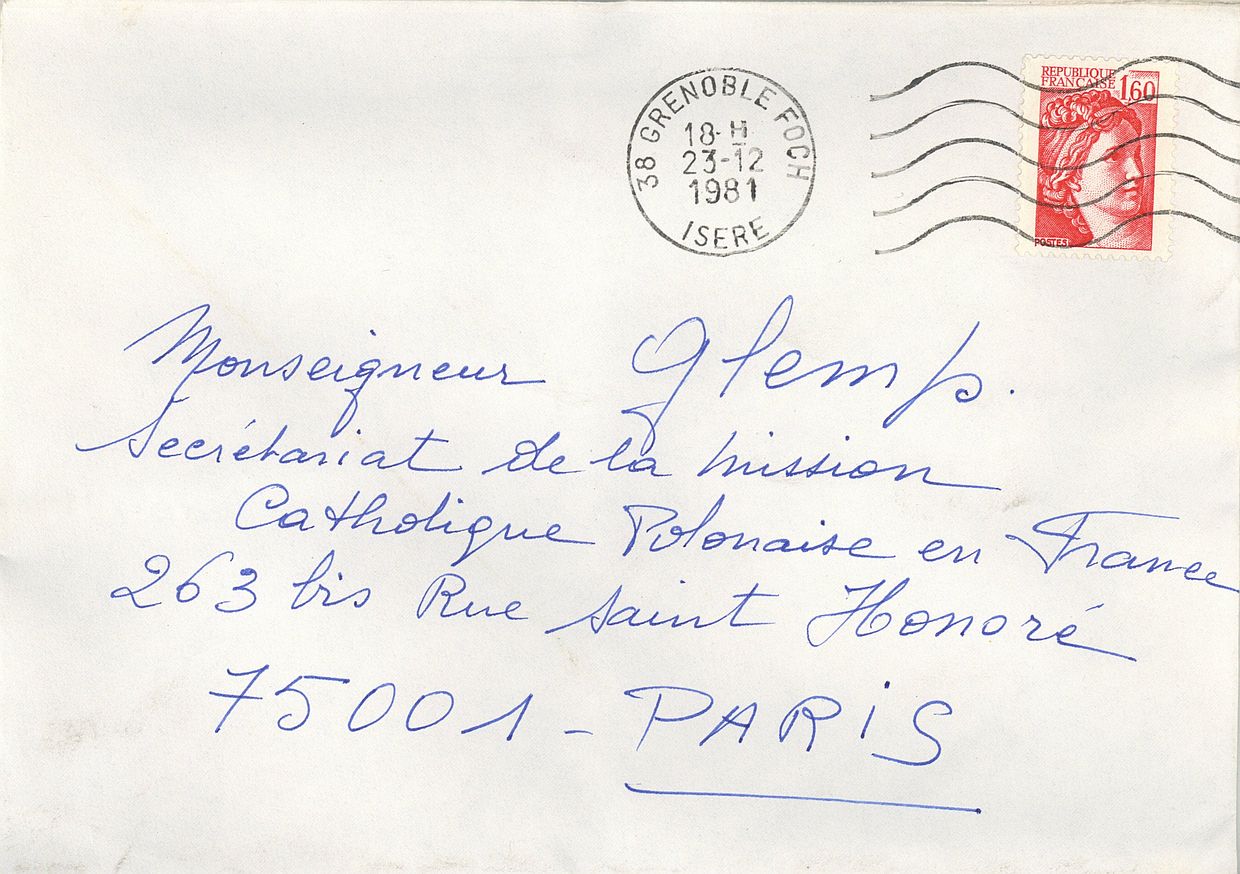 38 GRENOBLE FOCH
18-H
23-12
1981
ISERE
REPUBLIQUE
FRANCAISE
1,60
POSTES
Monseigneur Glemp.
Secrétariat de la mission
Catholique Polonaise en France
263 bis Rue Saint Honoré
75001 - PARIS